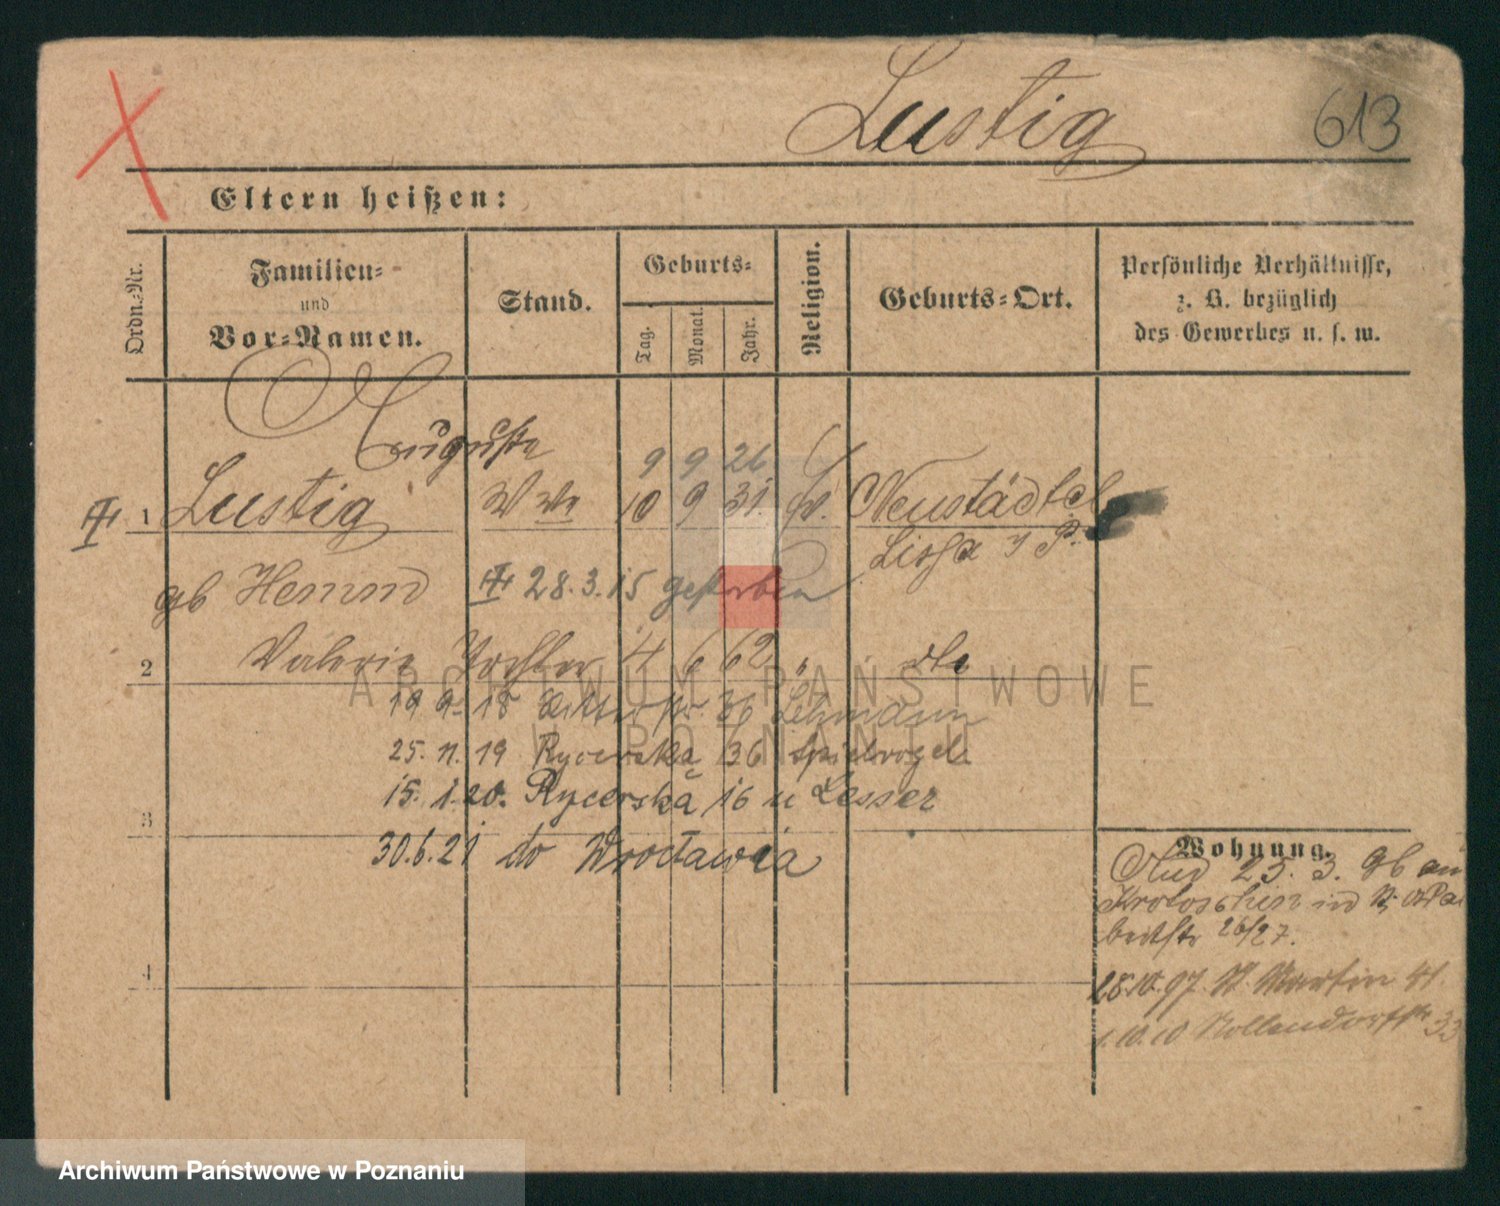 Lustig
613
Eltern heißen:
Ordn.-Nr.
Familien-
und
Vor-Namen.
Stand.
Geburts-
Tag.
Monat.
Jahr.
Religion.
Geburts-Ort.
Persönliche Verhältnisse,
z. B. bezüglich
des Gewerbes u. s. w.
Auguste
9 9 26
1 Lustig Wwe 10 9 31. Neustädtel
Lissa
gb 28.3.15 gestorben
2 Valerie Tochter 4 6 62 " dto
19 9 18 Ritterstr. 36 Lehmann
25. 11. 19 Rycerska 36 Spielvogel
15. 1. 20. Rycerska 16 u Lesser
3
30.6.21 do Wrocławia
Wohnung.
25. 3. 96 aus
Krotoschin
26/27.
4
28.10.97. St. Martin 41.
1.10.10 Nollendorfstr 33
ARCHIWUM PAŃSTWOWE
W POZNANIU
Archiwum Państwowe w Poznaniu